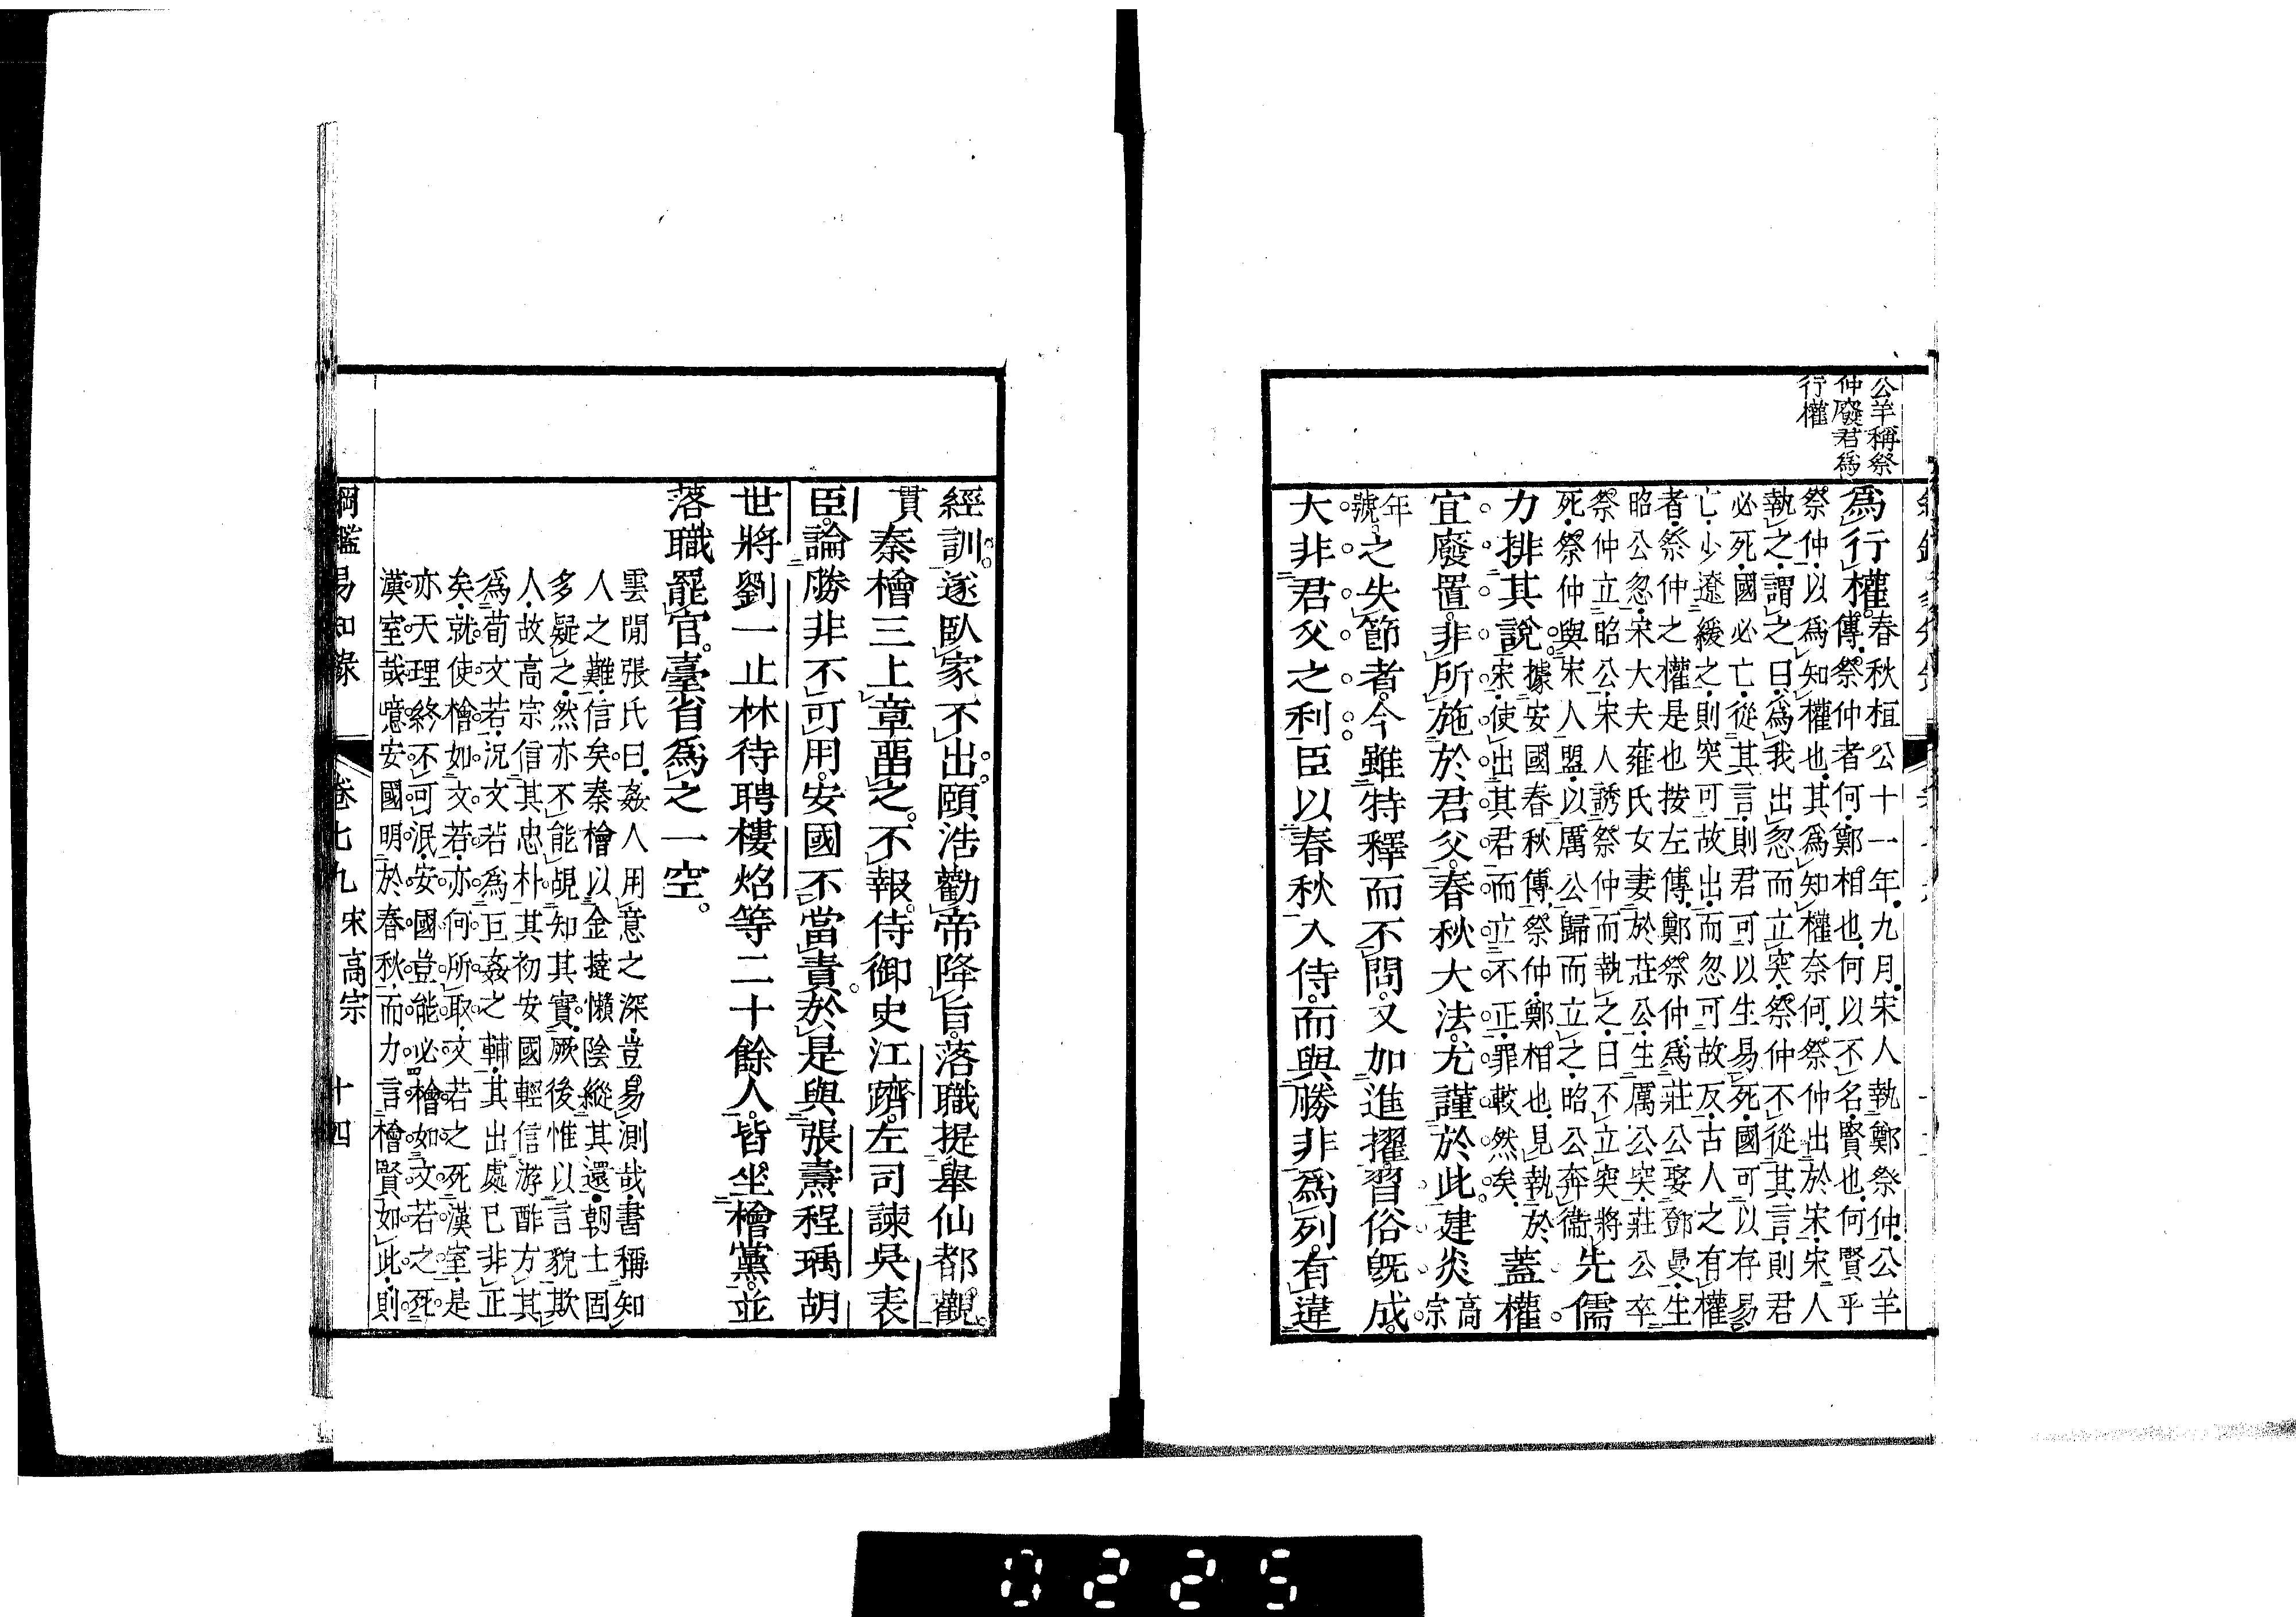 公羊稱祭
仲廢君爲
行權
爲行權。春秋桓公十一年九月宋人執鄭祭仲公羊
傳祭仲者何鄭相也何以不名賢也何賢乎
祭仲以爲知權也其爲知權奈何祭仲出於宋宋人
執之謂之曰爲我出忽而立突祭仲不從其言則君
必死國必亡從其言則君可以生易死國可以存易
亡少遼緩之則突可故出而忽可故反古人之有權
者祭仲之權是也按左傳鄭祭仲爲莊公娶鄧曼生
昭公忽宋大夫雍氏女妻於莊公生厲公突莊公卒
祭仲立昭公宋人誘祭仲而執之曰不立突將
死祭仲與宋人盟以厲公歸而立之昭公奔衞 先儒
力排其說。據安國春秋傳祭仲鄭相也見執於
宋使出其君而立不正罪較然矣 蓋權
宜廢置非所施於君父春秋大法尤謹於此。建炎高宗
年號之失節者今雖特釋而不問又加進擢習俗旣成。
大非君父之利臣以春秋入侍而與勝非爲列有違
經訓。遂臥家不出。頤浩勸帝降旨落職提舉仙都觀。
貫秦檜三上章畱之。不報。侍御史江躋左司諫吳表
臣論勝非不可用。安國不當責於是與張燾程瑀胡
世將劉一止林待聘樓炤等二十餘人皆坐檜黨並
落職罷官。臺省爲之一空。
雲閒張氏曰姦人用意之深豈易測哉書稱知
人之難信矣秦檜以金撻懶陰縱其還朝士固
多疑之然亦不能覘知其實厥後惟以言貌欺
人故高宗信其忠朴其初安國輕信游酢方其
爲荀文若況文若爲巨姦之輔其出處已非正
矣就使檜如文若亦何所取文若之死漢室是
亦天理終不可泯安國豈能必檜如文若之死
漢室哉噫安國明於春秋而力言檜賢如此則
綱鑑易知錄 卷七九 宋高宗 十四